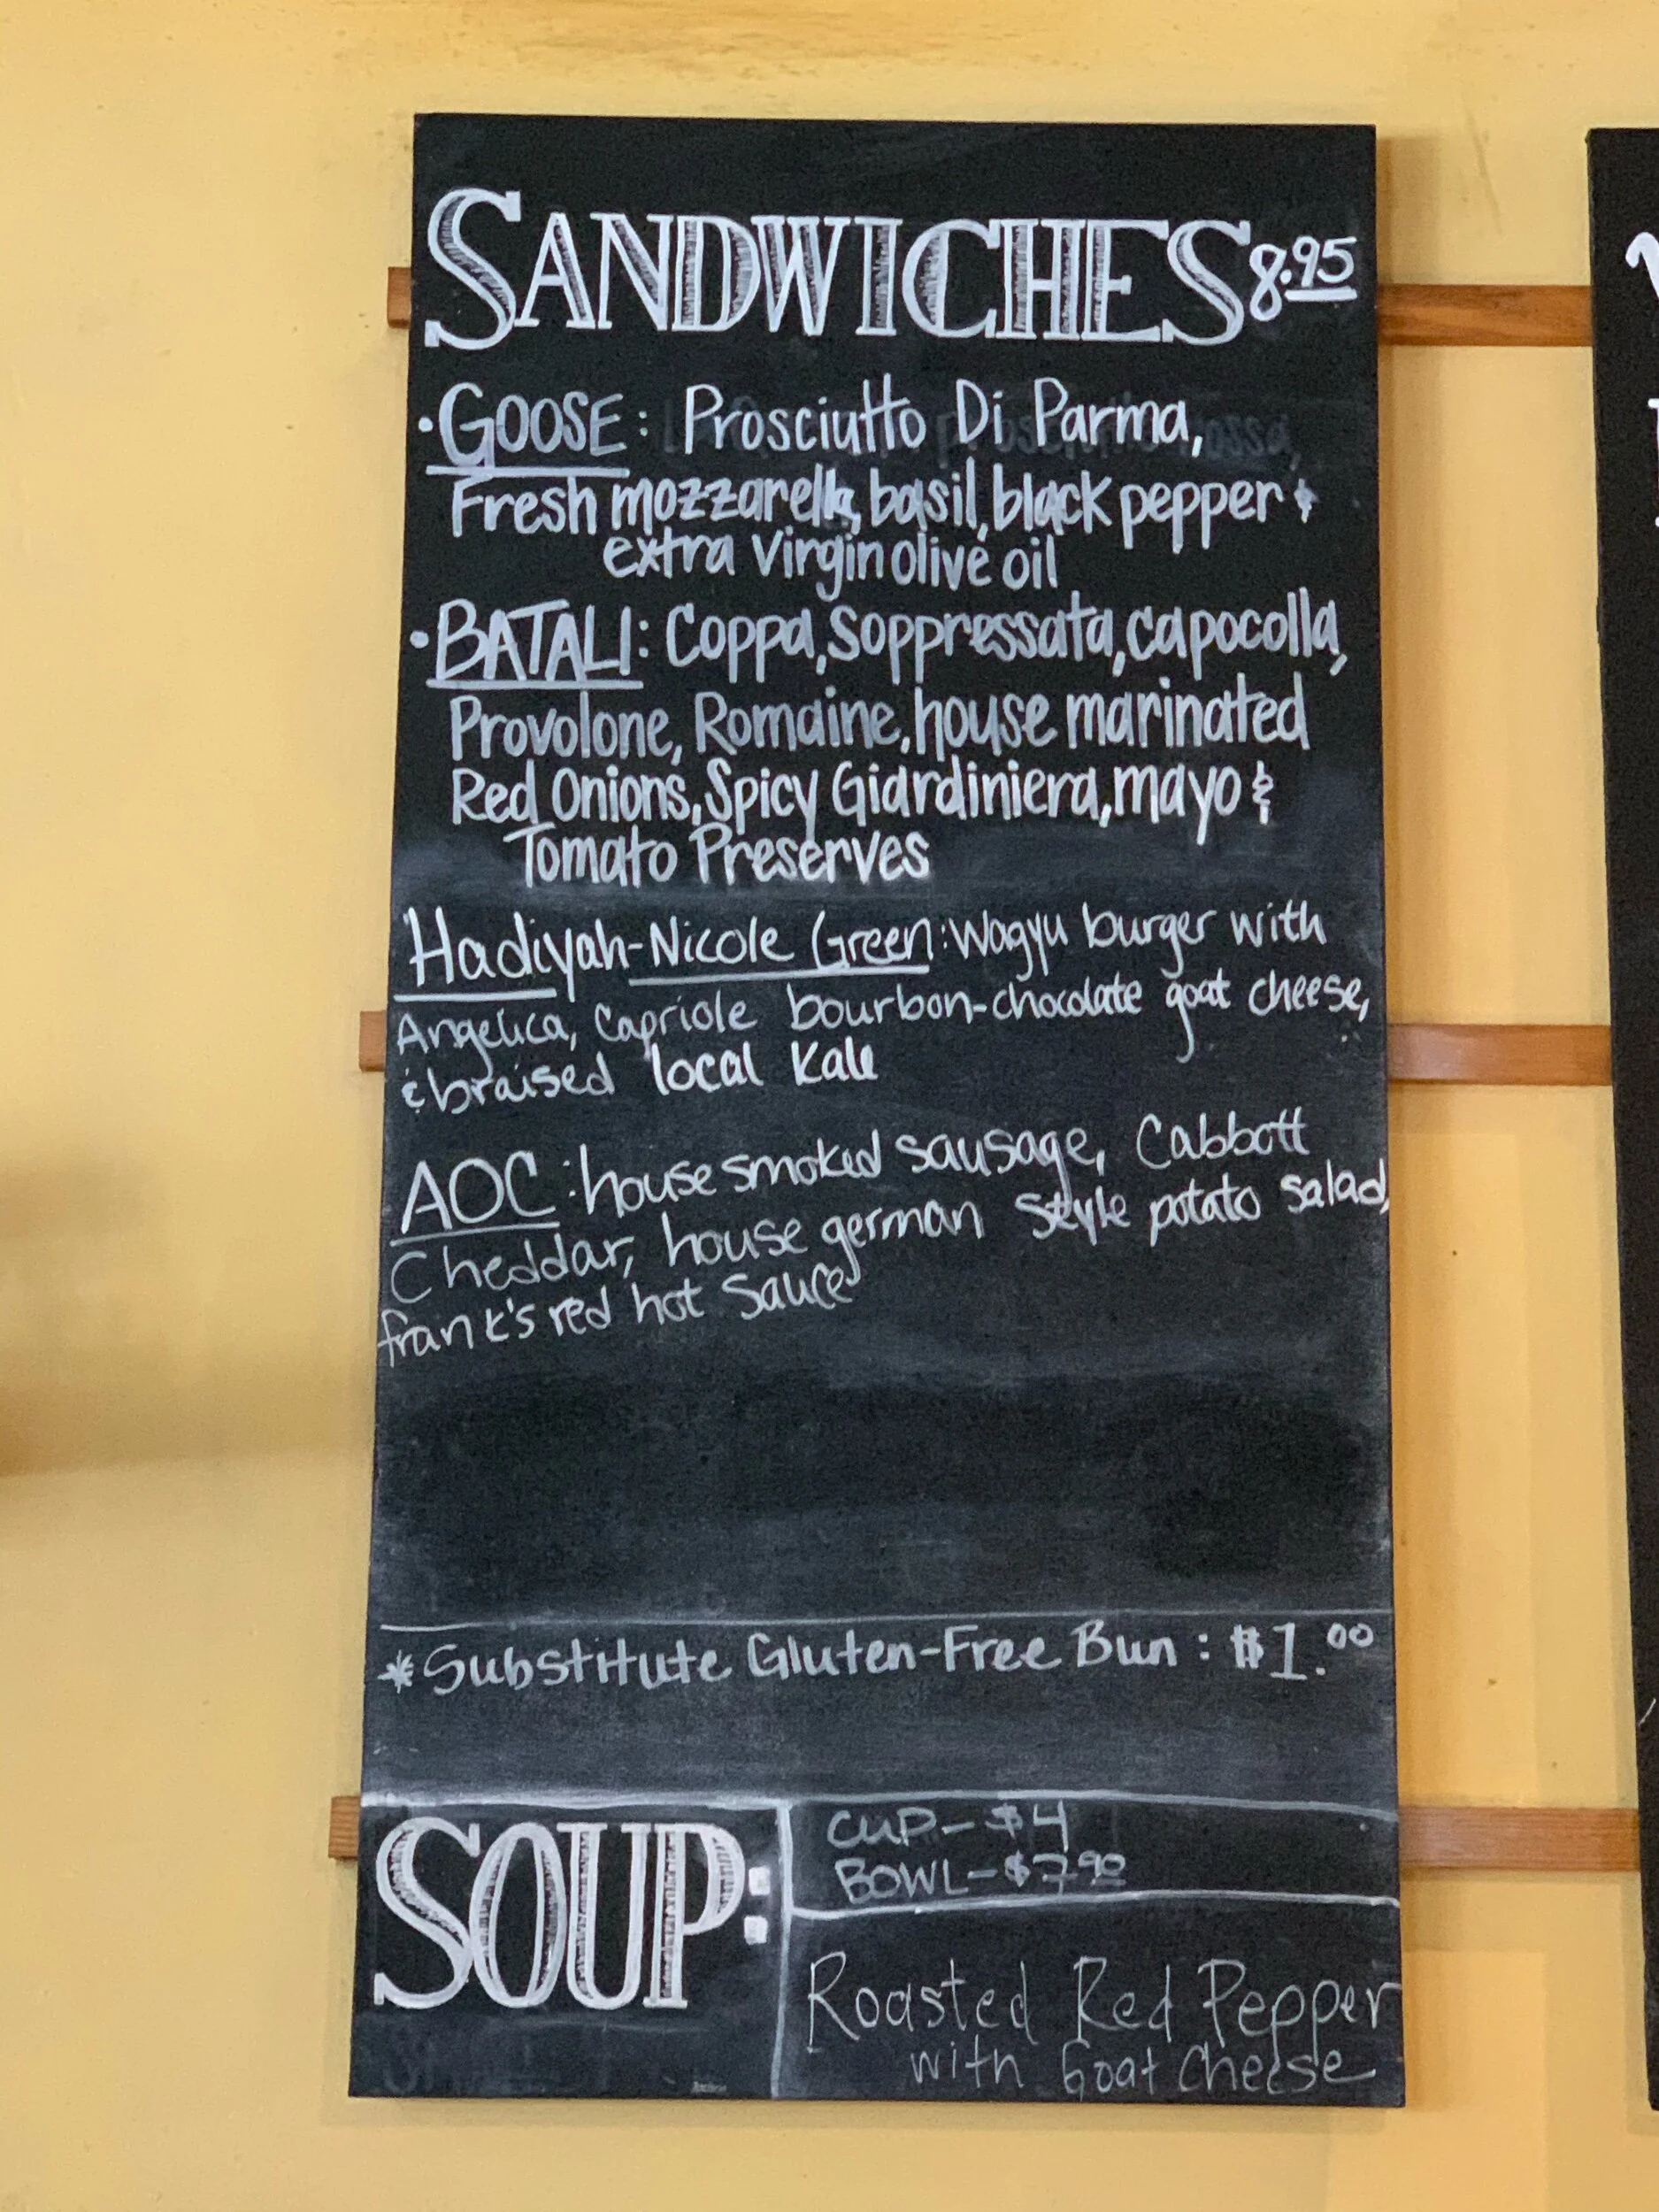 SANDWICHES 8.95
•GOOSE: Prosciutto Di Parma,
Fresh mozzarella, basil, black pepper &
extra virgin olive oil
•BATALI: Coppa, Soppressata, capocolla,
Provolone, Romaine, house marinated
Red Onions, Spicy Giardiniera, mayo &
Tomato Preserves
Hadiyah-Nicole Green: Wagyu burger with
Angelica, Capriole bourbon-chocolate goat cheese,
& braised local kale
AOC: house smoked sausage, Cabbott
Cheddar, house german style potato salad,
frank's red hot sauce
*Substitute Gluten-Free Bun: $1.00
SOUP:
CUP-$4
BOWL-$7.90
Roasted Red Pepper
with Goat Cheese